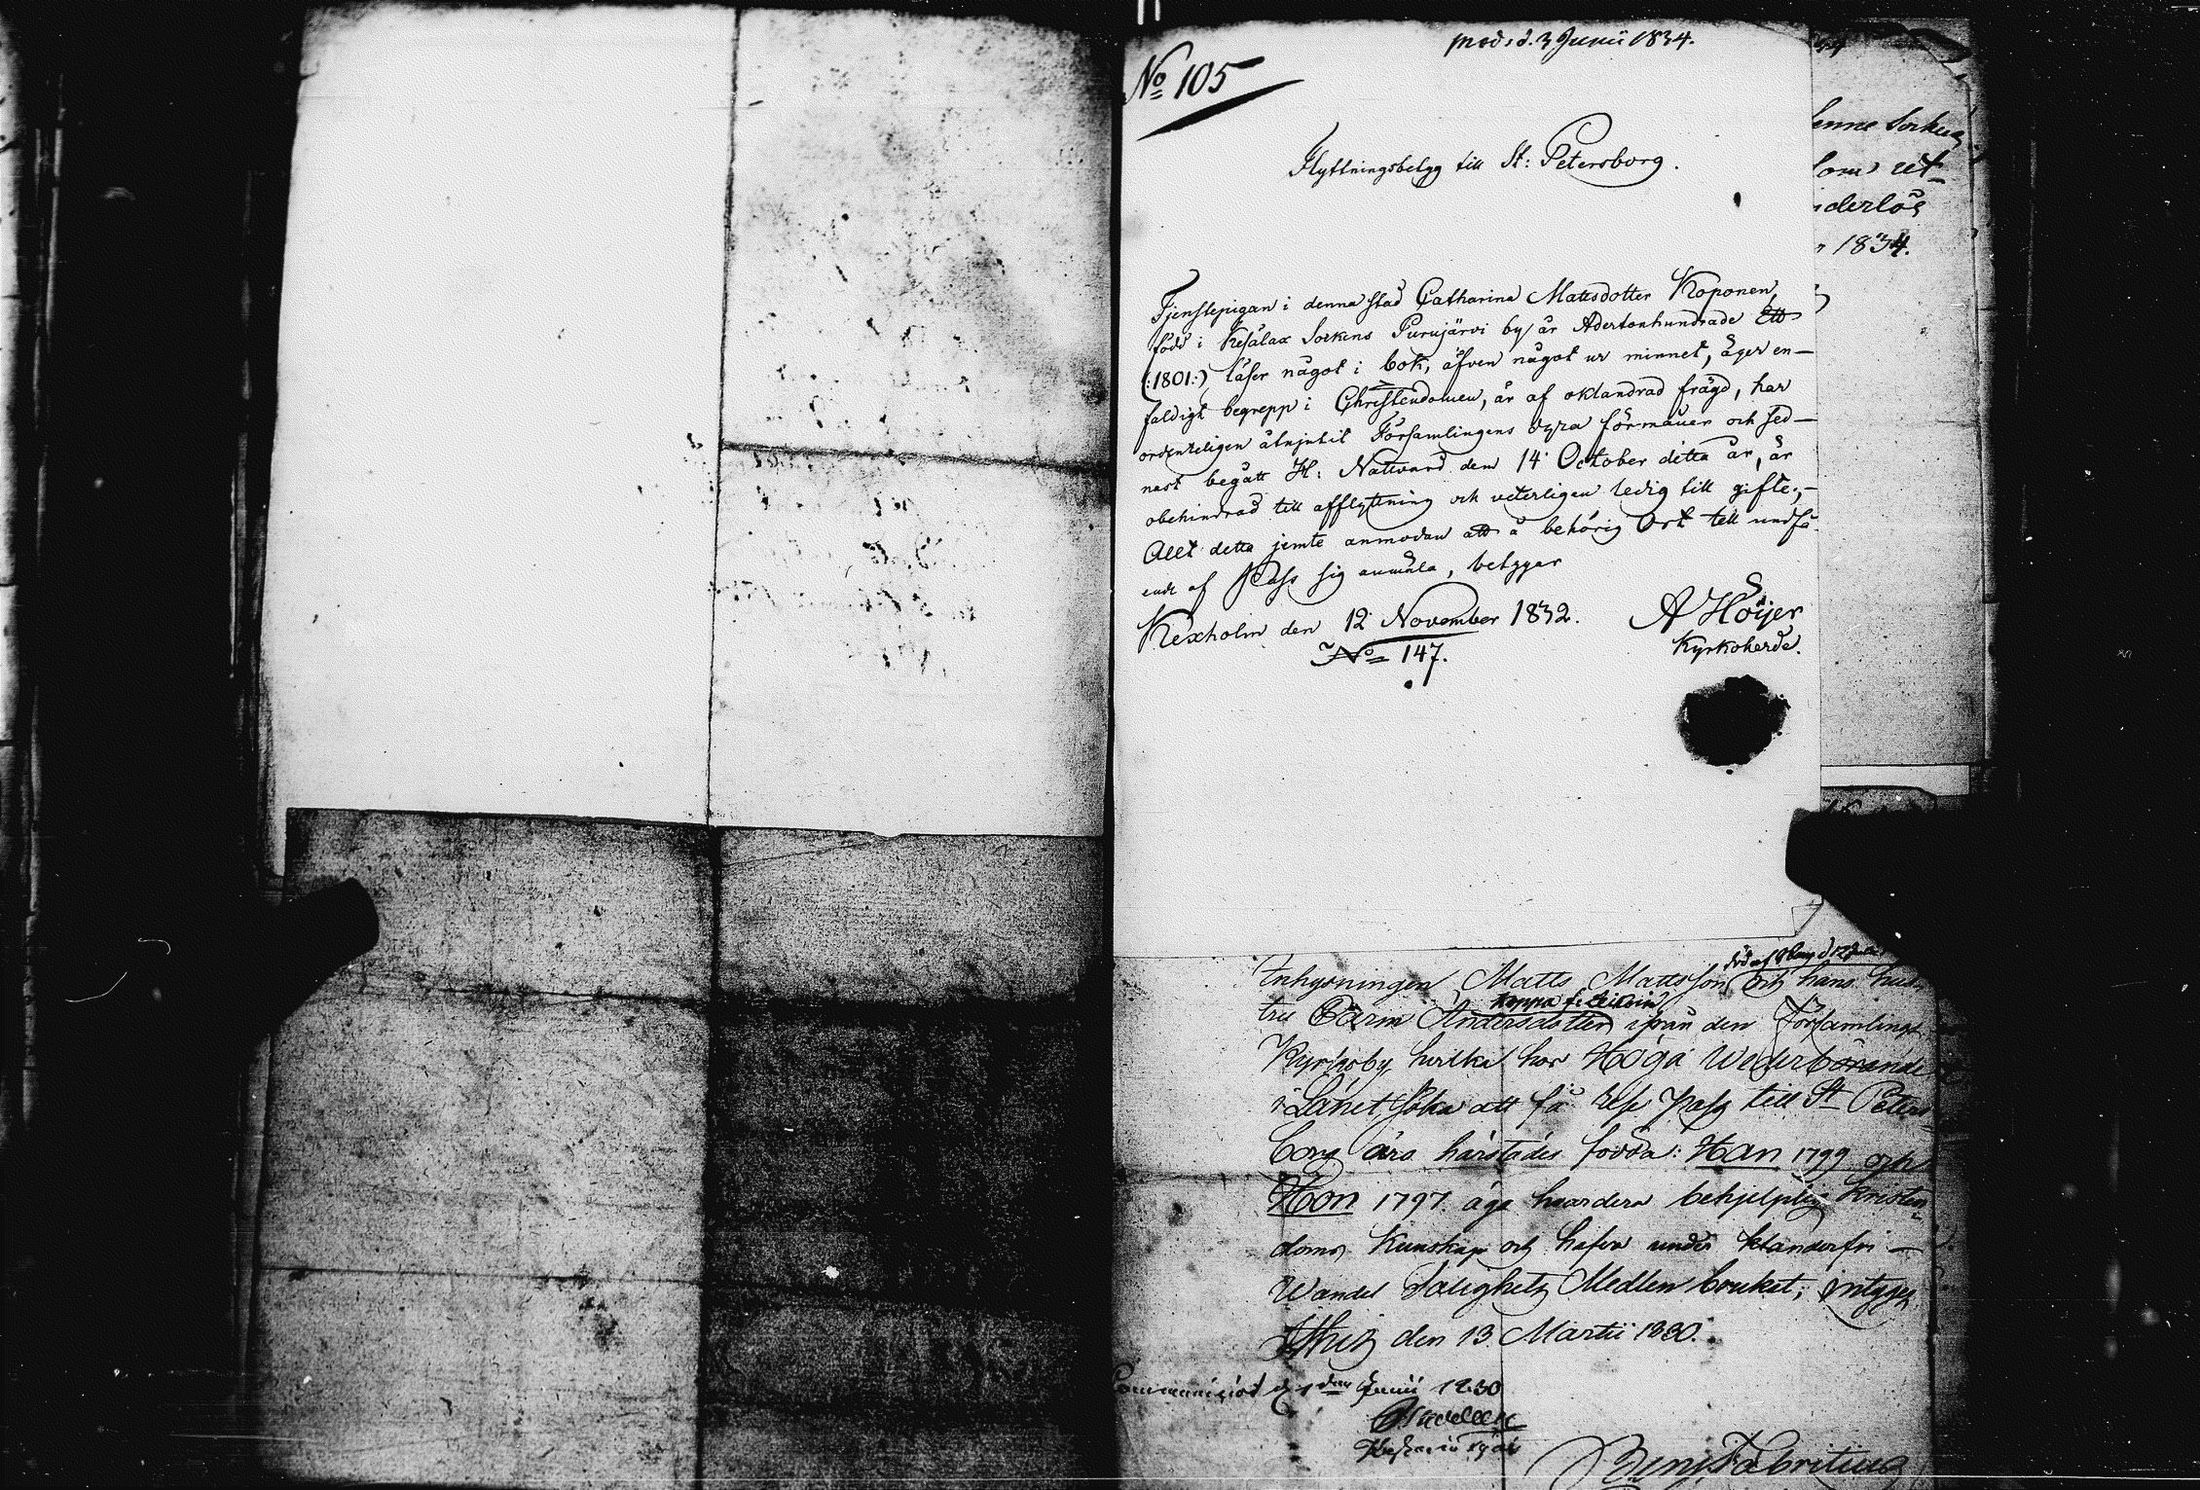 prod: d. 3 Junii 1834.
No 105
Flyttningsbetyg till St: Petersborg.
Tjenstepigan i denna stad Catharina Matsdotter Koponen,
född i Kesälax Sockens Purujärvi by år Adertonhundrade Ett
(:1801:), läser något i bok, äfven något ur minnet, äger en-
faldigt begrepp i Christendomen, är af oklandrad frägd, har
ordenteligen åtnjutit Församlingens dyra förmåner och sed-
nast begått H: Nattvard den 14 October detta år, är
obehindrad till afflyttning och veterligen ledig till gifte;-
Allt detta jemte anmodan att å behörig Ort till undfå-
ende af Pass sig anmäla, betygar
Kexholm den 12 November 1832.
No 147.
A Höijer
Kyrkoherde.
enne Socken
som
derlös
1834.
död af
Inhysningen Matts Mattsson och hans hus-
Koppa
tru Carin Andersdotter ifrån den Församlings
Kyrkoby hvilka hos Höga Wederbörande
i Länet söka att få Rese Pass till St Peters-
borg äro härstädes födda: Han 1799 och
Hon 1797 äga hvardera behjelplig Kristen-
doms Kunskap och hafva under klanderfri
Wandel Salighets Medlen brukat; intygas
den 13 Martii 1830.
Communicerat d. 1 Junii 1830
Fabritius